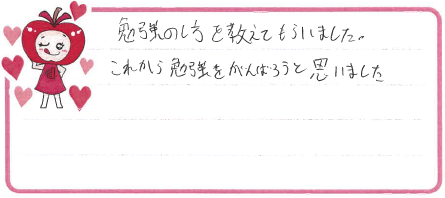 勉強のし方を教えてもらいました。
これから勉強をがんばろうと思いました